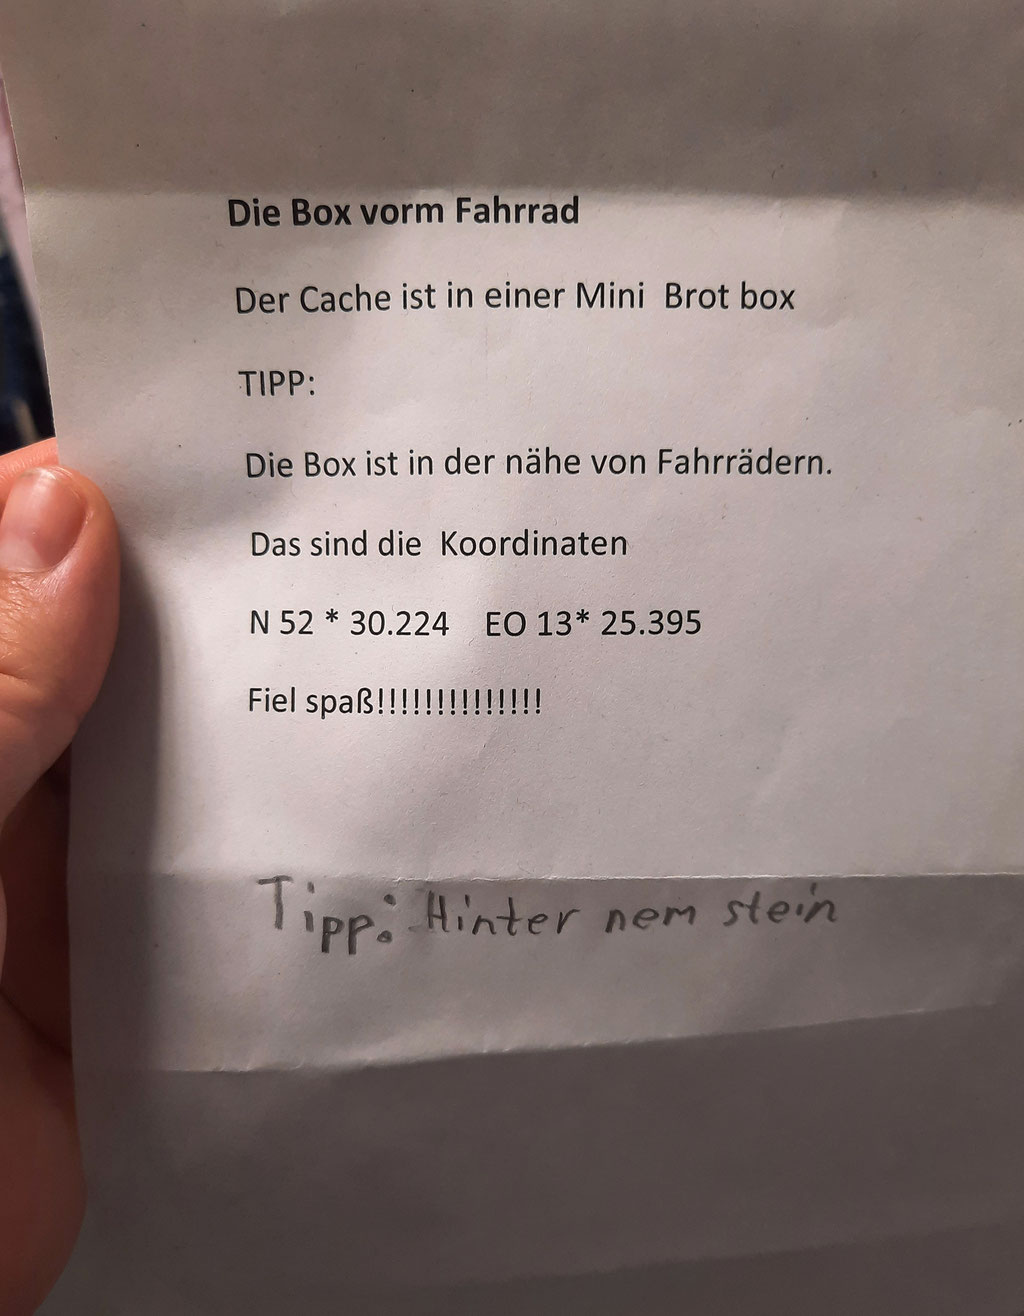 Die Box vorm Fahrrad
Der Cache ist in einer Mini  Brot box
TIPP:
Die Box ist in der nähe von Fahrrädern.
Das sind die  Koordinaten
N 52 * 30.224    EO 13* 25.395
Fiel spaß!!!!!!!!!!!!!!
Tipp: Hinter nem stein